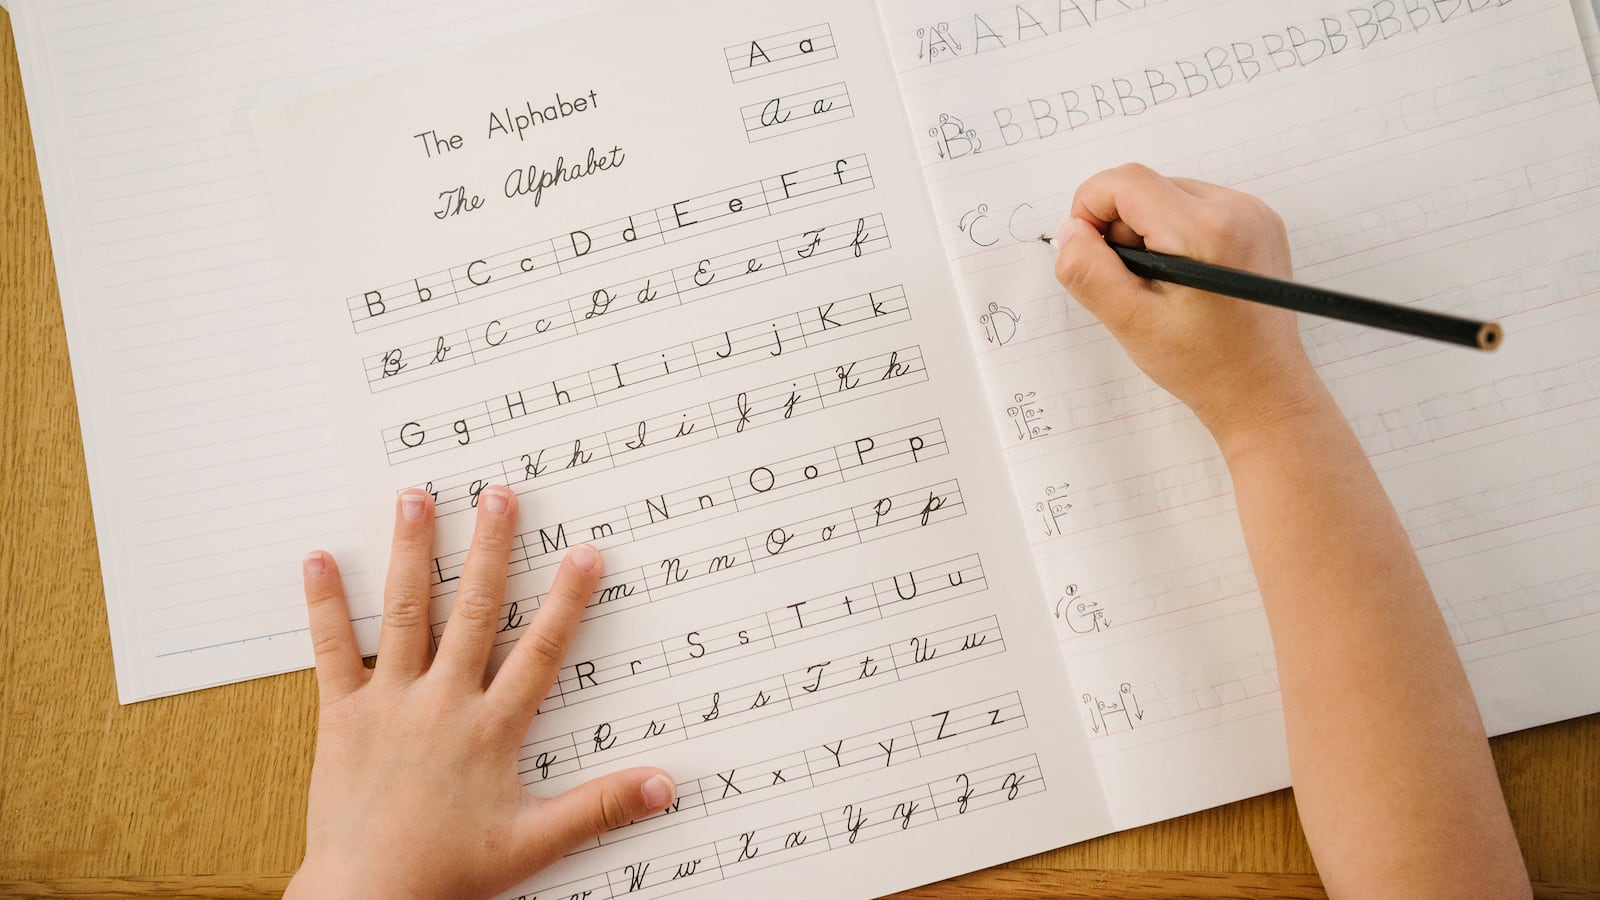 A a
A a
The Alphabet
The Alphabet
B b C c D d E e F f
B b C c D d E e F f
G g H h I i J j K k
g H h I i J j K k
L M m N n O o P p
l m N n O o P p
R r S s T t U u
q R r S s T t U u
w X x Y y Z z
W w X x Y y Z z
A A A A A
B B B B B B B B B B B B B B B B
C C
D
E
F
G
H